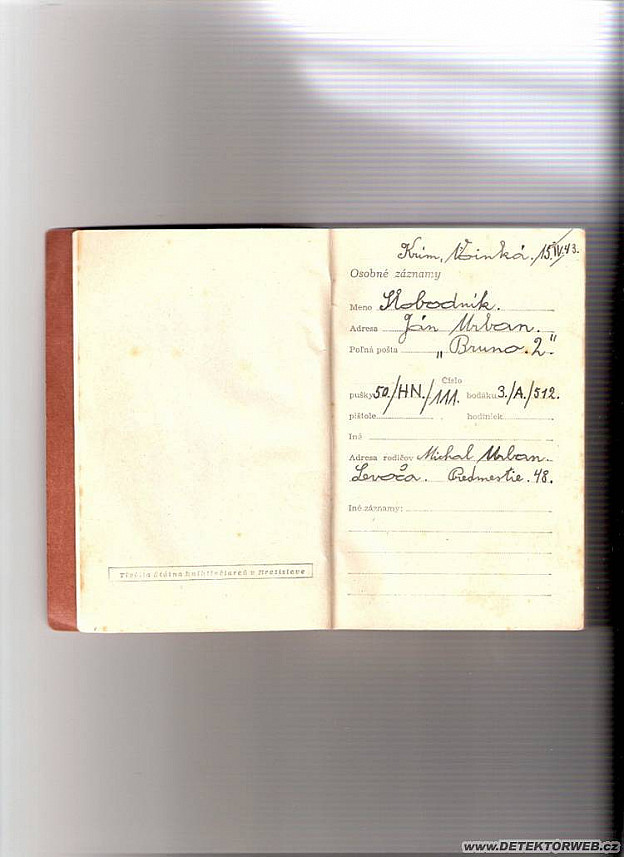 Krim, 15./IV.43.
Osobné záznamy
Meno Slobodník.
Adresa Ján Urban.
Poľná pošta „Bruno. 2."
Číslo
pušky 50./HN./111. bodáku 3./A./512.
pištole hodiniek
Iné
Adresa rodičov Michal Urban.
Levoča. Predmestie. 48.
Iné záznamy:
Tlačila Štátna kníhtlačiareň v Bratislave
www.DETEKTORWEB.cz